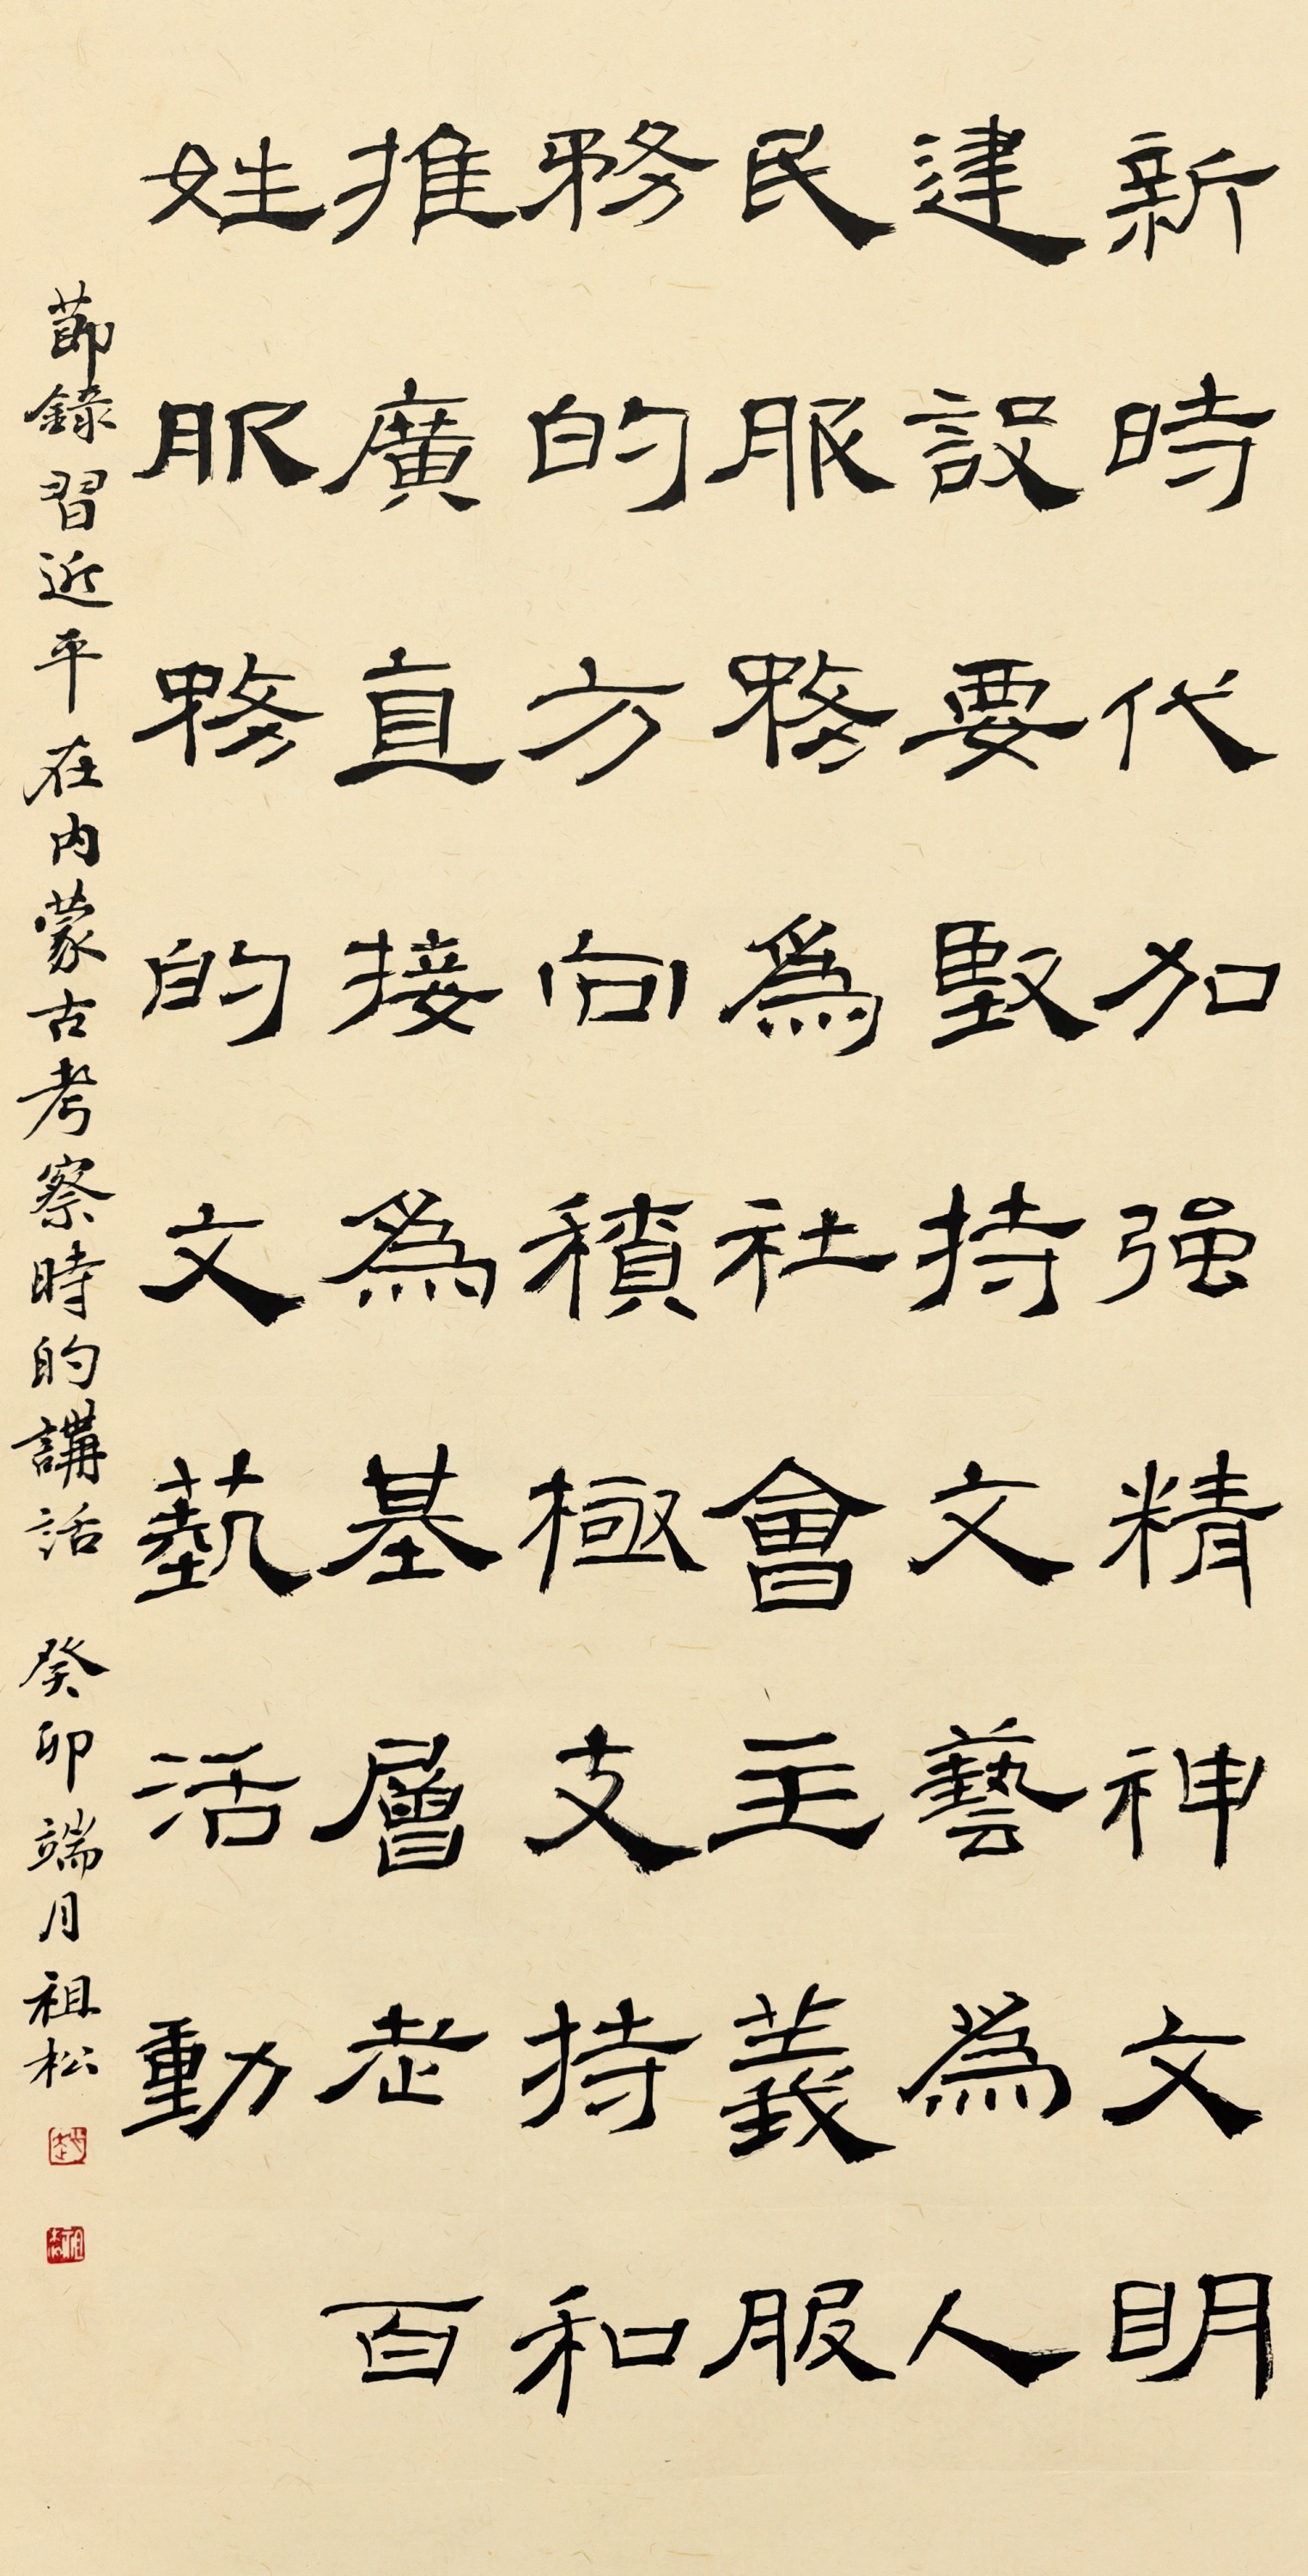 新時代加强精神文明
建設要堅持文藝為人
民服務為社會主義服
務的方向積極支持和
推廣直接為基層老百
姓服務的文藝活動
節錄習近平在内蒙古考察時的講話 癸卯端月祖松